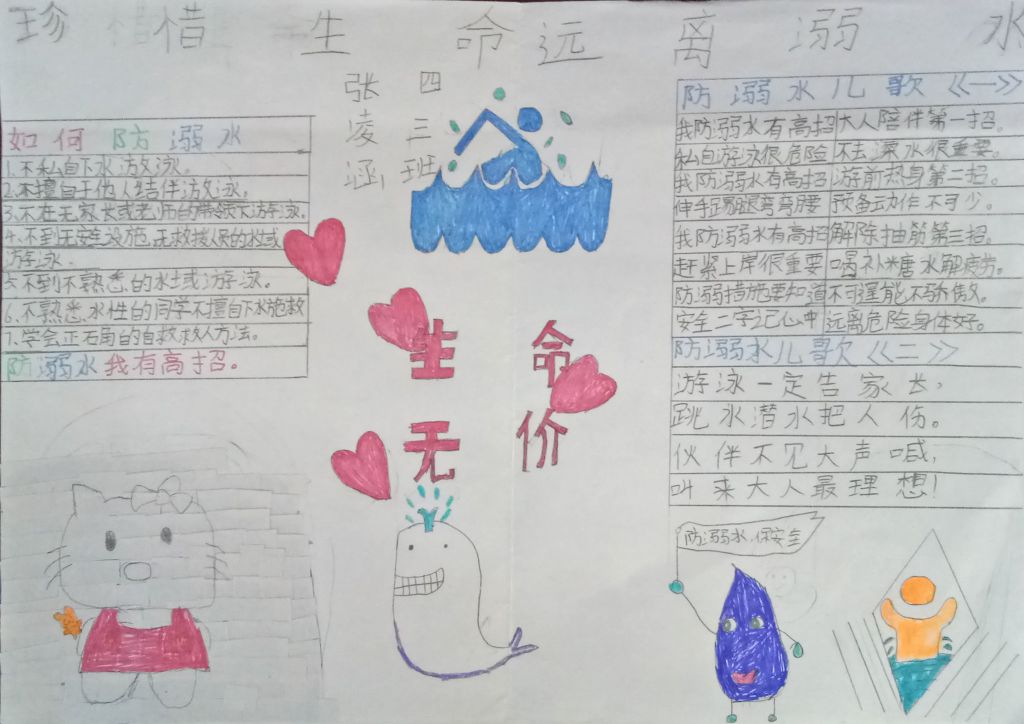 珍惜生命远离溺水
四三班
张凌涵
如何防溺水
1.不私自下水游泳。
2.不擅自于他人结伴游泳。
3.不在无家长或老师的带领下游泳。
4.不到无安全设施,无救援人员的水域
游泳.
5.不到不熟悉的水域游泳。
6.不熟悉水性的同学不擅自下水施救
7.学会正确的自救救人方法。
防溺水我有高招。
生命
无价
防溺水儿歌《一》
我防溺水有高招大人陪伴第一招。
私自游泳很危险 不去深水很重要。
我防溺水有高招 游前热身第二招。
伸手踢腿弯弯腰 预备动作不可少。
我防溺水有高招解除抽筋第三招。
赶紧上岸很重要 喝补糖水解疲劳。
防溺措施要知道不可逞能不骄傲。
安全二字记心中 远离危险身体好。
防溺水儿歌《二》
游泳一定告家长,
跳水潜水把人伤。
伙伴不见大声喊,
叫来大人最理想!
防溺水,保安全